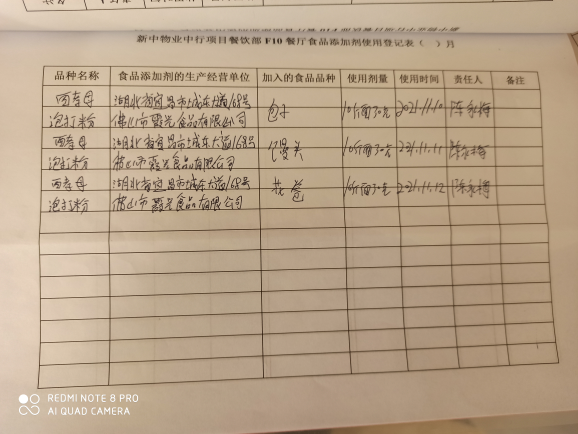 新中物业中行项目餐饮部 F10 餐厅食品添加剂使用登记表（ ）月
品种名称 食品添加剂的生产经营单位 加入的食品品种 使用剂量 使用时间 责任人 备注
西孝母 湖北省宜昌市城东大道168号 包子 10斤面30克 2021.11.10
泡打粉 佛山市霸光食品有限公司
西孝母 湖北省宜昌市城东大道168号 馒头 10斤面30克 221.11.11
泡打粉 佛山市霸光食品有限公司
西孝母 湖北省宜昌市城东大道168号 花卷 10斤面30克 2021.11.12
泡打粉 佛山市霸光食品有限公司
REDMI NOTE 8 PRO
AI QUAD CAMERA